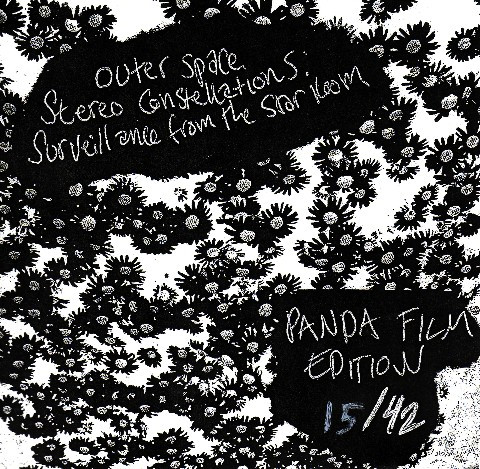 outer space.
Stereo Constellations:
Surveillance from the Star Room
PANDA FILM
EDITION
15/42